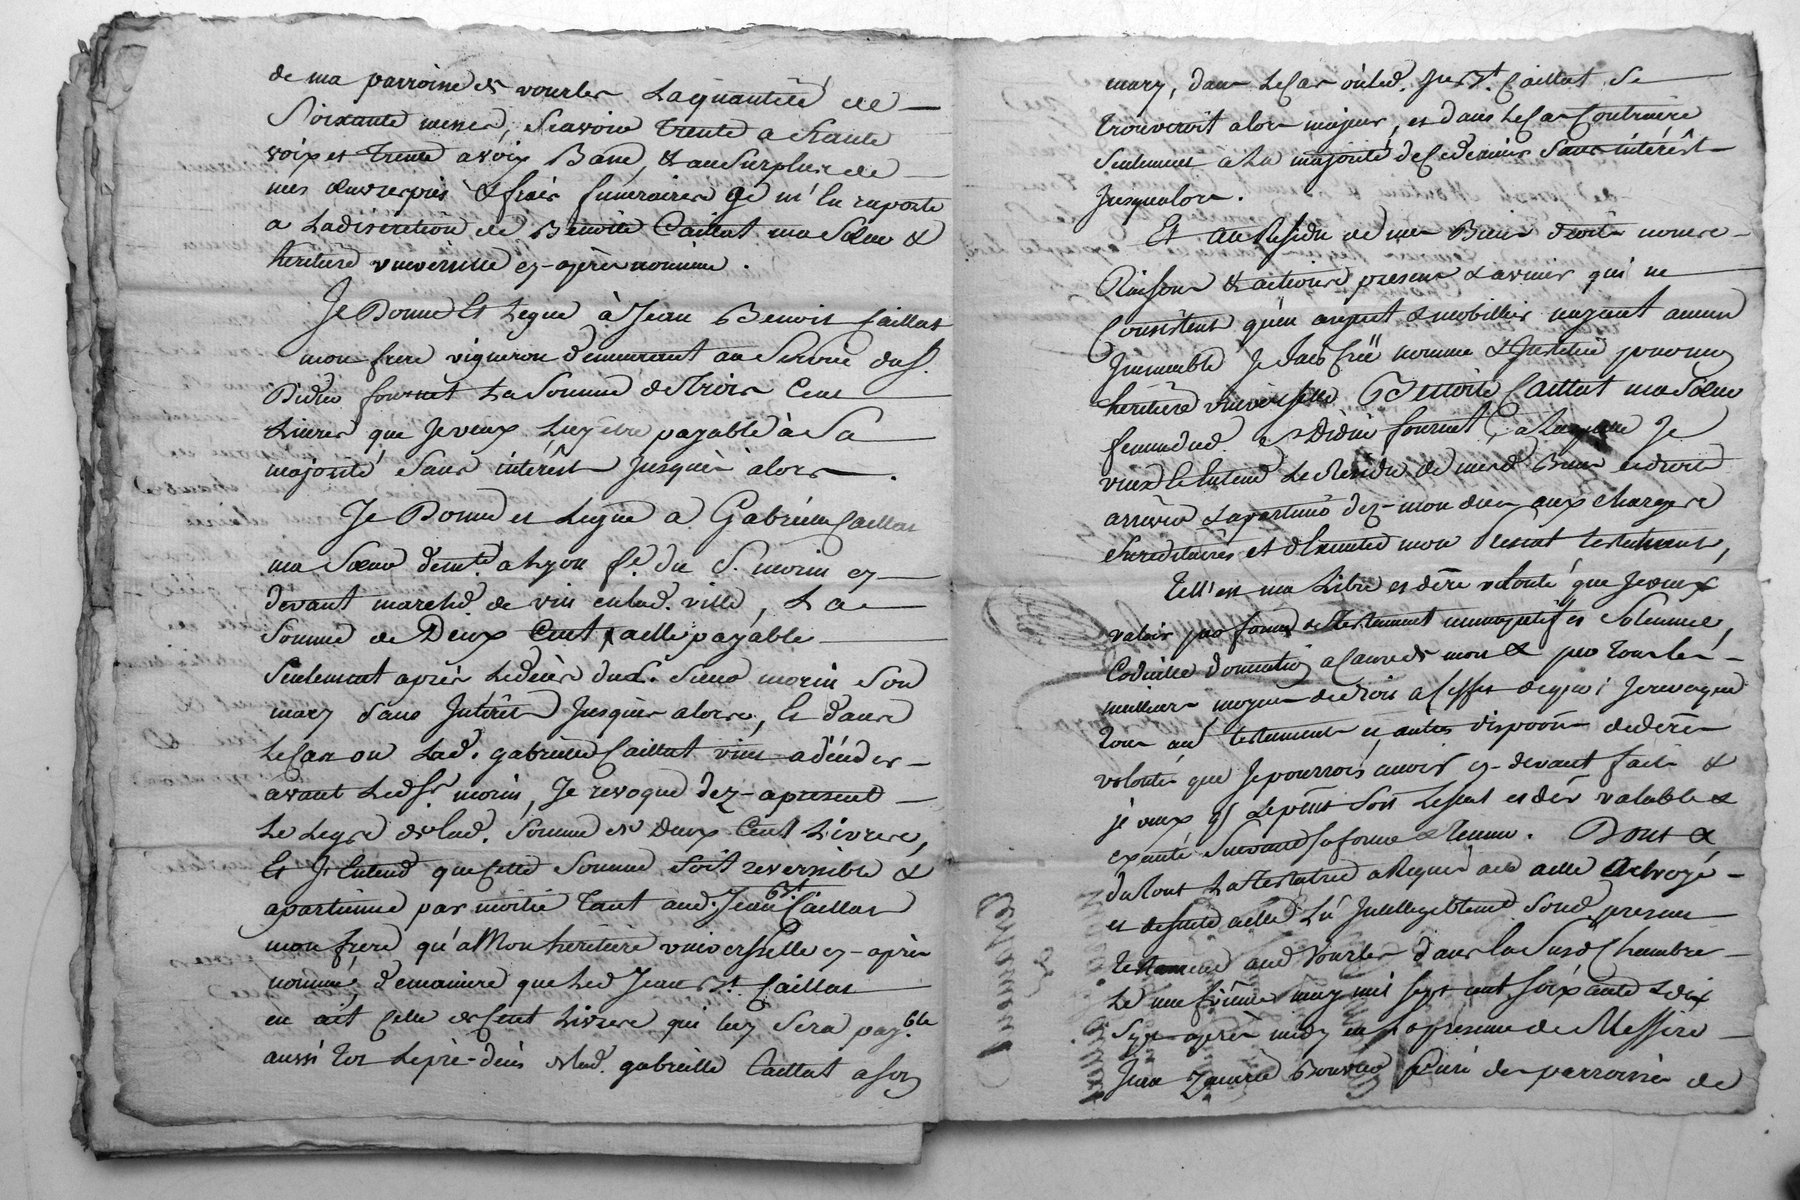 de ma parroisse de vourles La quantité de
Soixante messes, Scavoir Trente a haute
voix et Trente a voix Basse, & au Surplus de
mes œuvres pies & frais funeraires Je m'en raporte
a La discretion de Benoite Caillat ma Sœur &
heritiere universelle cy-après nommée.
Je Donne Et Legue à Jean Benoit Caillat
mon frere vigneron demeurant au Service du S.
Didier fournet La Somme de Trois Cent
Livres que Je veux Luy être payable à Sa
majorité Sans intérêt Jusques alors.
Je Donne et Legue a Gabrielle Caillat
ma Sœur demte. a Lyon fe. du S. morin cy
devant marchd. de vin en lad. ville, La
Somme de Deux Cent a elle payable
Seulement après Le décès dud. Sieur morin Son
mary Sans Intérêt Jusques alors, Et dans
Le Cas ou Lad. gabrielle Caillat vint a décéder
avant Led. Sr. morin, Je revoque dez-apresent
Le Legs de lad. Somme de Deux Cent Livres,
Et J'Entend que Cette Somme Soit reversible &
apartienne par moitié Tant aud. Jean Bt. Caillat
mon frere, qu'a Mon heritiere universselle cy-après
nommée, de maniere que Led. Jean Bt. Caillat
en ait Celle de Cent Livres qui luy Sera payble
aussi tot Le pré-décès de lad. gabrielle Caillat a Son
mary, dans Le Cas où led. Jn Bt. Caillat Se
trouveroit alors majeur, et dans Le Cas Contraire
Seulement à La majorité de Ce dernier Sans intérêt
Jusqualors.
Et au Residu de mes Biens droits noms
Raisons & actions presens & avenir qui ne
Consistent qu'en argent & mobillier nayant aucun
Immeuble Je fais Créé nomme & Institue pour mon
heritiere universelle Benoite Caillat ma Sœur
femme dud. S. Didier fournet, a Laquelle Je
veux & Entend Le Residu de mesd. Biens et droits
arriver & apartenir dez-mon deces aux charges
hereditaires et d'Executer mon present testament,
Tell'est ma Libre et dere. volonté que Je veux
valoir par forme de Testament nuncupatif et Solemnel,
Codicille donnation a Cause de mort & par tous les
meilleurs moyens de droit a l'effet de quoi Je revoque
tous auts. testaments et autres disposons. de dere.
volonté que Je pourrois avoir cy-devant fait &
je veux que Le pñt Soit Le Seul et der. valable &
exécuté Suivant Sa forme & teneur. Dont &
du tout La testatrice a Requis acte a elle octroyé
et de Suite a elle Lû Intelligiblement Sond. present
testament aud. Vourles dans la Susd. Chambre
Le neufvième may mil Sept cent Soixante & dix
Sept après midy en presence de Messire
Curé de parroisse de